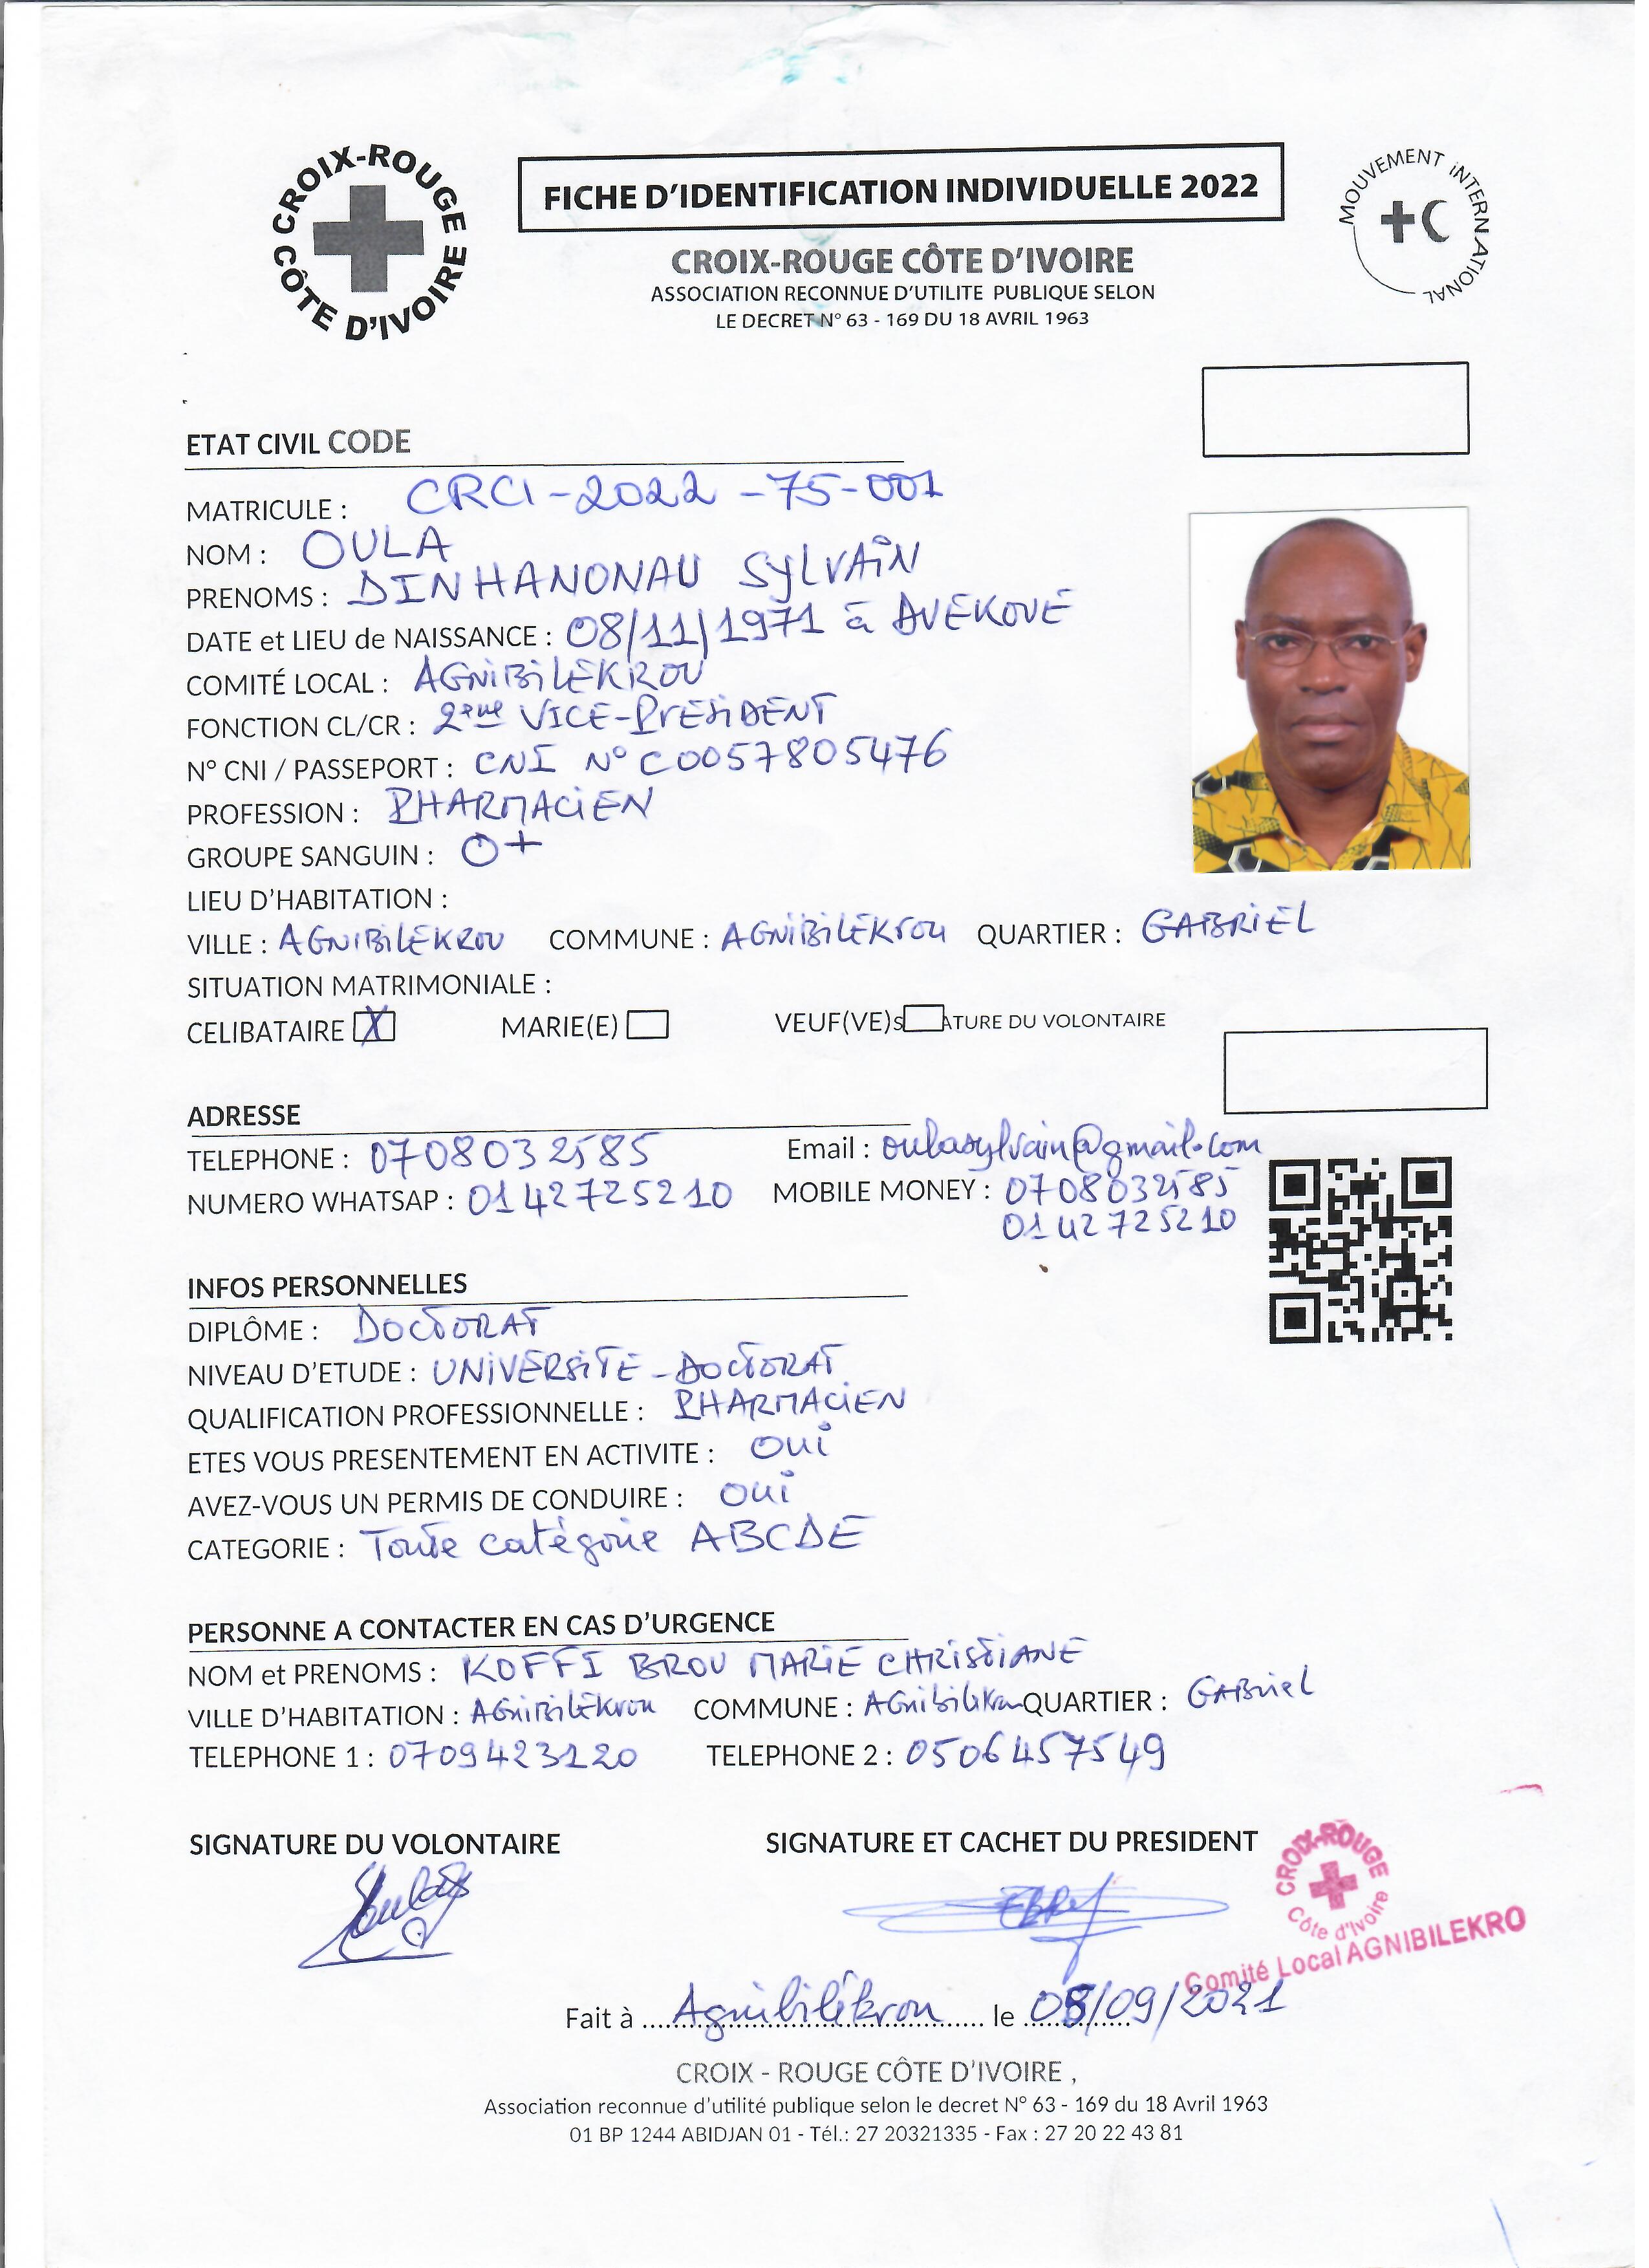 CROIX-ROUGE CÔTE D'IVOIRE
FICHE D'IDENTIFICATION INDIVIDUELLE 2022
MOUVEMENT INTERNATIONAL
CROIX-ROUGE CÔTE D'IVOIRE
ASSOCIATION RECONNUE D'UTILITE PUBLIQUE SELON
LE DECRET N° 63 - 169 DU 18 AVRIL 1963
ETAT CIVIL CODE
MATRICULE : CRCI-2022-75-001
NOM : OULA
PRENOMS : DINHANONAU SYLVAIN
DATE et LIEU de NAISSANCE : 08/11/1971 à AVEKOVE
COMITÉ LOCAL : AGNIBILEKROU
FONCTION CL/CR : 2eme VICE-PRESIDENT
N° CNI / PASSEPORT : CNI N° C0057805476
PROFESSION : PHARMACIEN
GROUPE SANGUIN : O+
LIEU D'HABITATION :
VILLE : AGNIBILEKROU COMMUNE : AGNIBILEKROU QUARTIER : GABRIEL
SITUATION MATRIMONIALE :
CELIBATAIRE X MARIE(E) VEUF(VE) S ATURE DU VOLONTAIRE
ADRESSE
TELEPHONE : 0708032585 Email : oulasylvain@gmail.com
NUMERO WHATSAP : 0142725210 MOBILE MONEY : 0708032585
0142725210
INFOS PERSONNELLES
DIPLÔME : DOCTORAT
NIVEAU D'ETUDE : UNIVERSITE - DOCTORAT
QUALIFICATION PROFESSIONNELLE : PHARMACIEN
ETES VOUS PRESENTEMENT EN ACTIVITE : OUI
AVEZ-VOUS UN PERMIS DE CONDUIRE : OUI
CATEGORIE : Toute catégorie ABCDE
PERSONNE A CONTACTER EN CAS D'URGENCE
NOM et PRENOMS : KOFFI BROU MARIE CHRISTIANE
VILLE D'HABITATION : AGNIBILEKROU COMMUNE : AGNIBILEKROU QUARTIER : GABRIEL
TELEPHONE 1 : 0709423120 TELEPHONE 2 : 0506457549
SIGNATURE DU VOLONTAIRE SIGNATURE ET CACHET DU PRESIDENT
CROIX-ROUGE Côte d'Ivoire
Comité Local AGNIBILEKRO
Fait à Agnibilékrou le 08/09/2021
CROIX - ROUGE CÔTE D'IVOIRE ,
Association reconnue d'utilité publique selon le decret N° 63 - 169 du 18 Avril 1963
01 BP 1244 ABIDJAN 01 - Tél.: 27 20321335 - Fax : 27 20 22 43 81